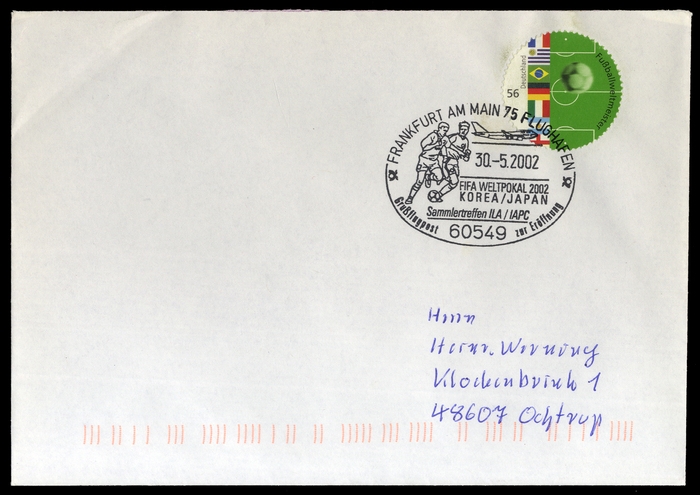 Deutschland
56
Fußballweltmeister
FRANKFURT AM MAIN 75 FLUGHAFEN
30.-5.2002
FIFA WELTPOKAL 2002
KOREA/JAPAN
Sammlertreffen ILA / IAPC
Großflugpost zur Eröffnung
60549
Herrn
Heinr. Werning
Klockenbrink 1
48607 Ochtrup